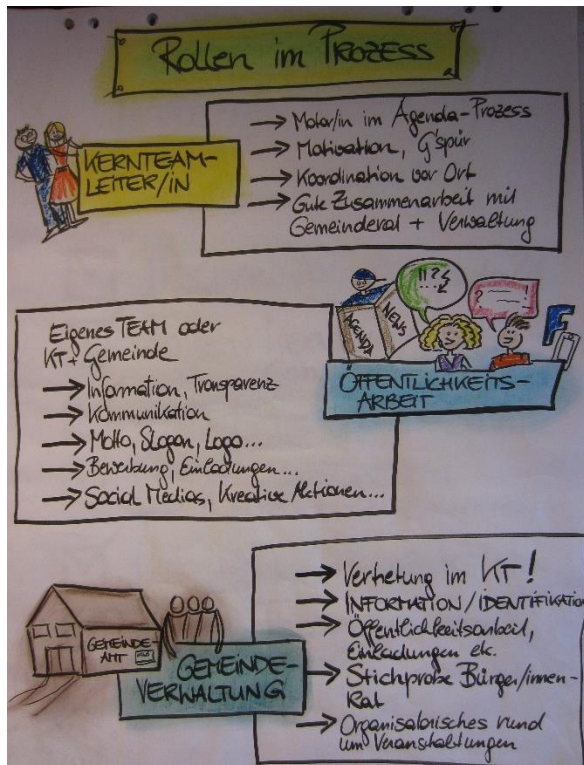 Rollen im PROZESS
KERNTEAM-
LEITER/IN
→ Motor/in im Agenda-Prozess
→ Motivation, G'spür
→ Koordination vor Ort
→ Gute Zusammenarbeit mit
Gemeinderat + Verwaltung
AGENDA
NEWS
!!?
?
F
ÖFFENTLICHKEITS-
ARBEIT
Eigenes TEAM oder
KT + Gemeinde
→ Information, Transparenz
→ Kommunikation
→ Motto, Slogan, Logo...
→ Bewerbung, Einladungen...
→ Social Medias, Kreative Aktionen...
GEMEINDE-
AMT
GEMEINDE-
VERWALTUNG
→ Vertretung im KT!
→ INFORMATION/IDENTIFIKATION
→ Öffentlichkeitsarbeit,
Einladungen etc.
→ Stichprobe Bürger/innen-
Rat
→ Organisatorisches rund
um Veranstaltungen